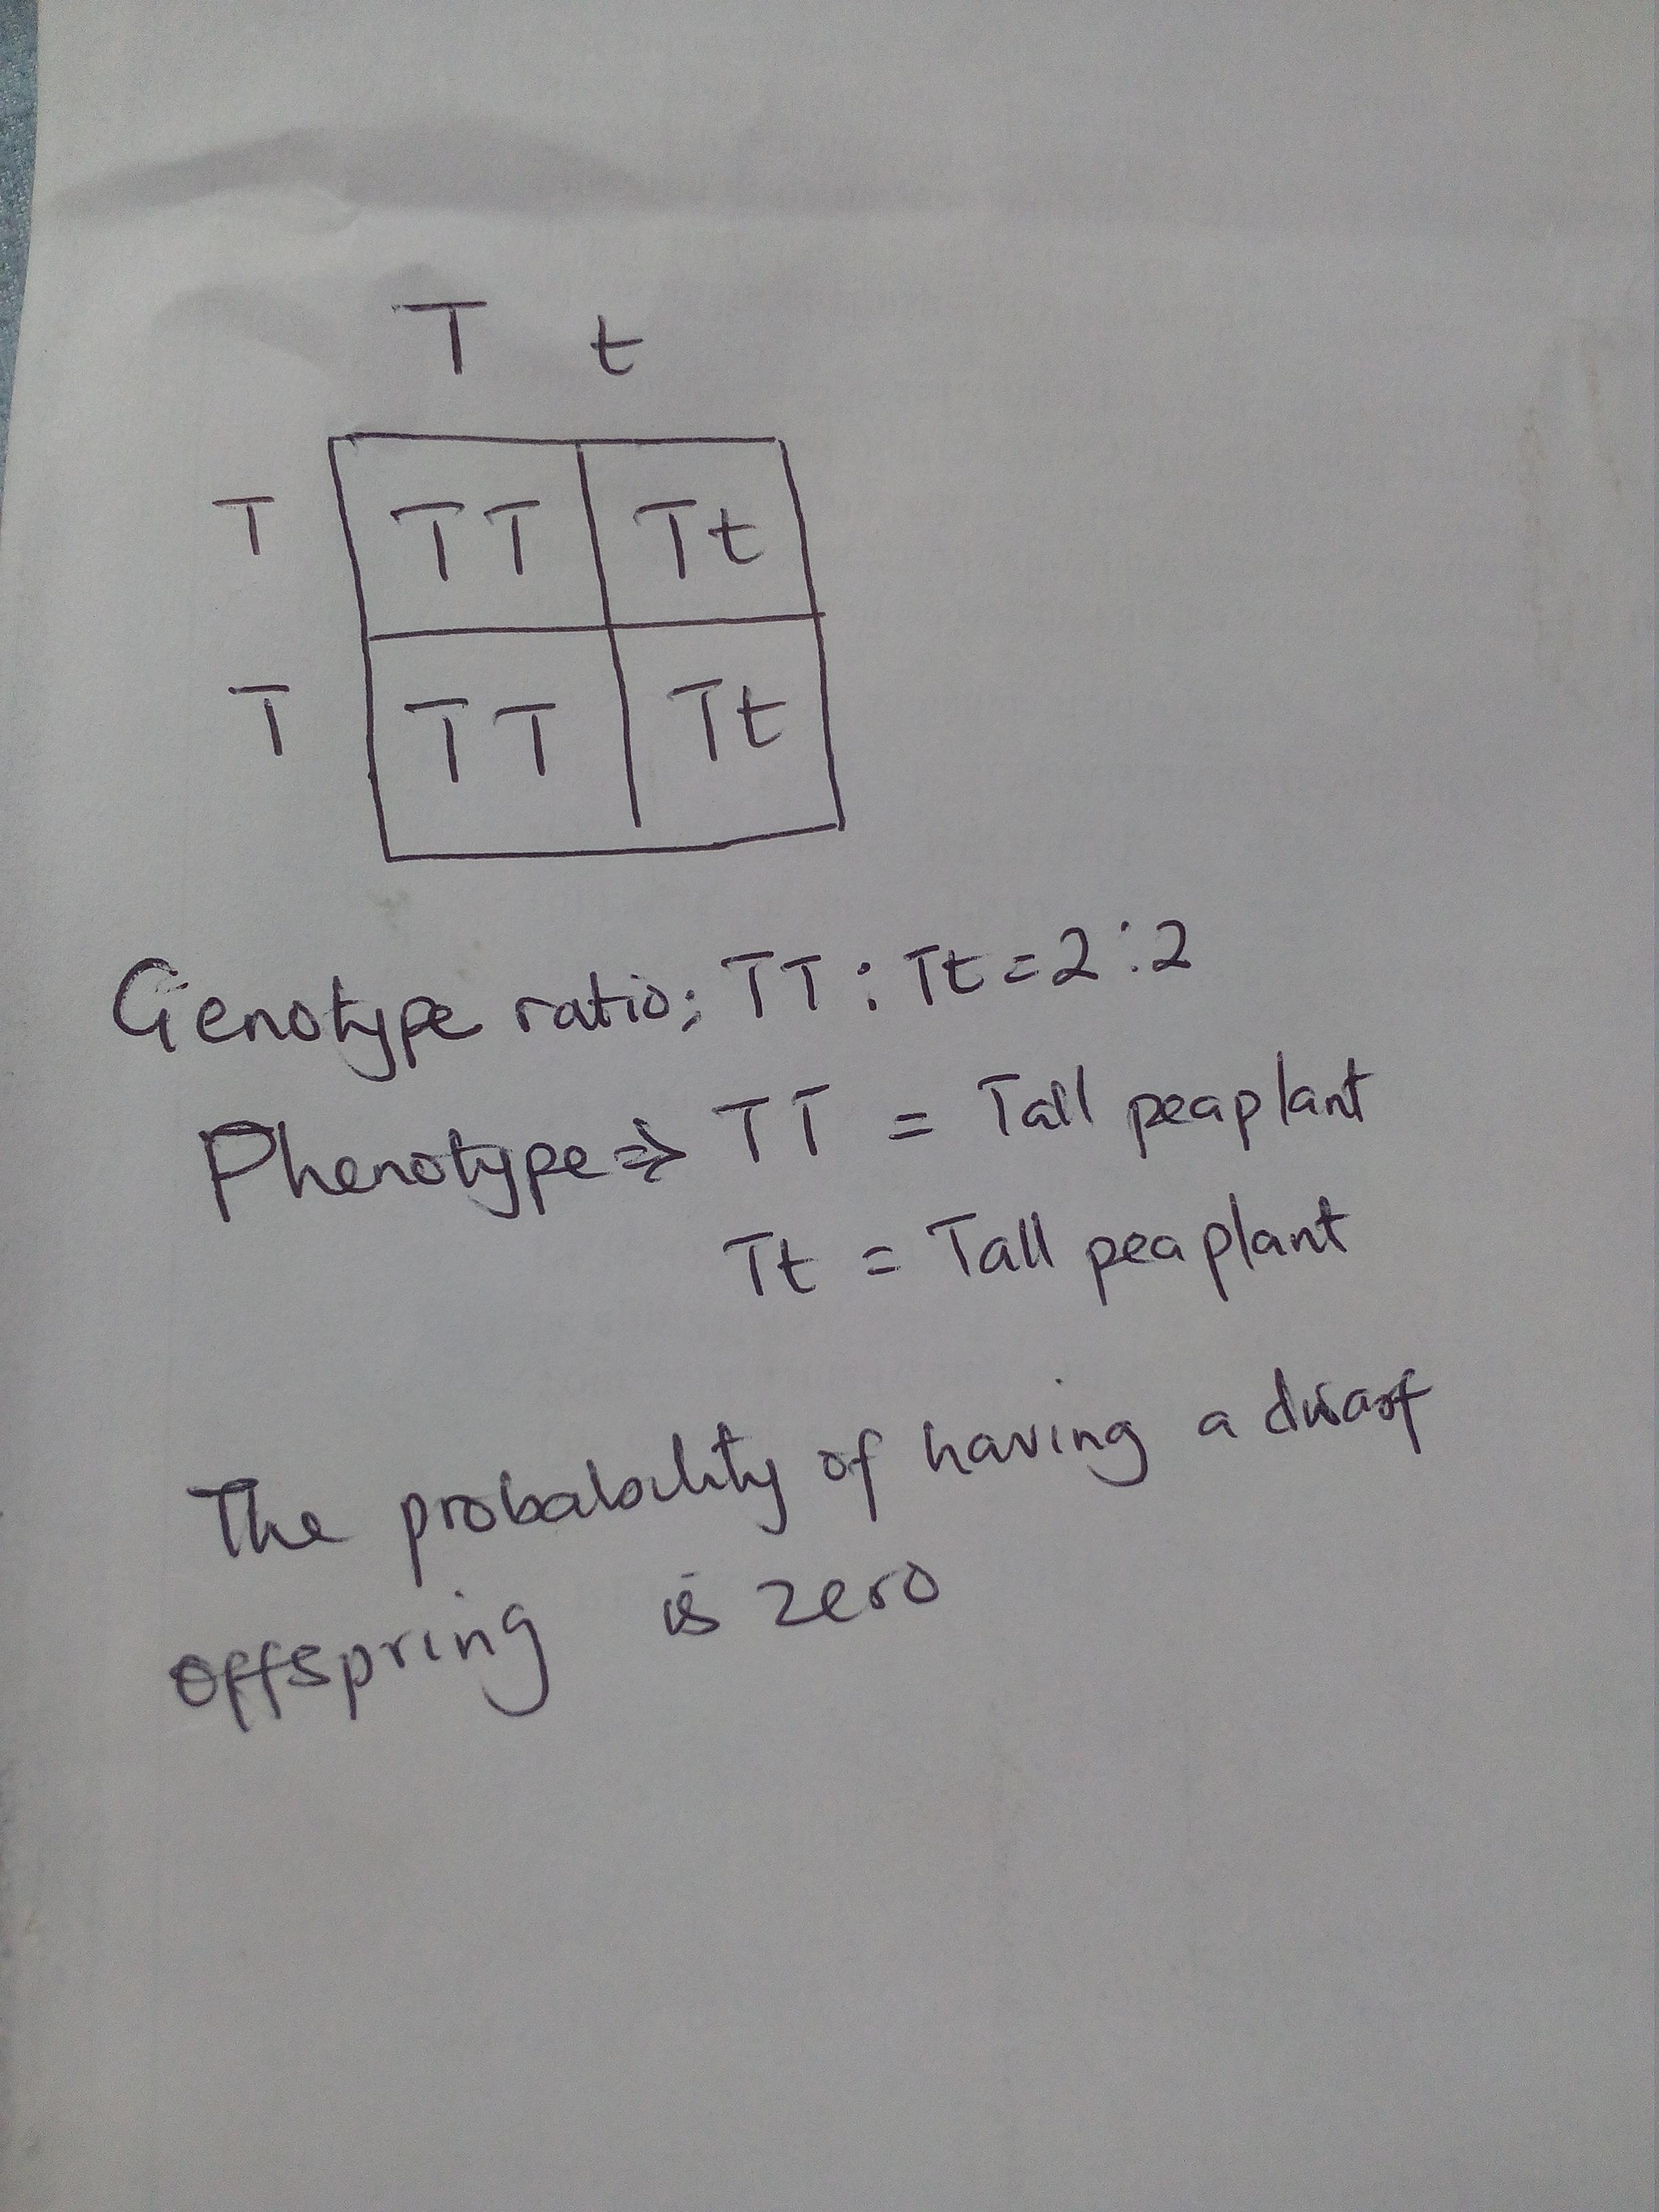 T t
T TT Tt
T TT Tt
Genotype ratio; TT : Tt = 2 : 2
Phenotype ⇒ TT = Tall peaplant
Tt = Tall pea plant
The probabality of having a dwarf
offspring is zero